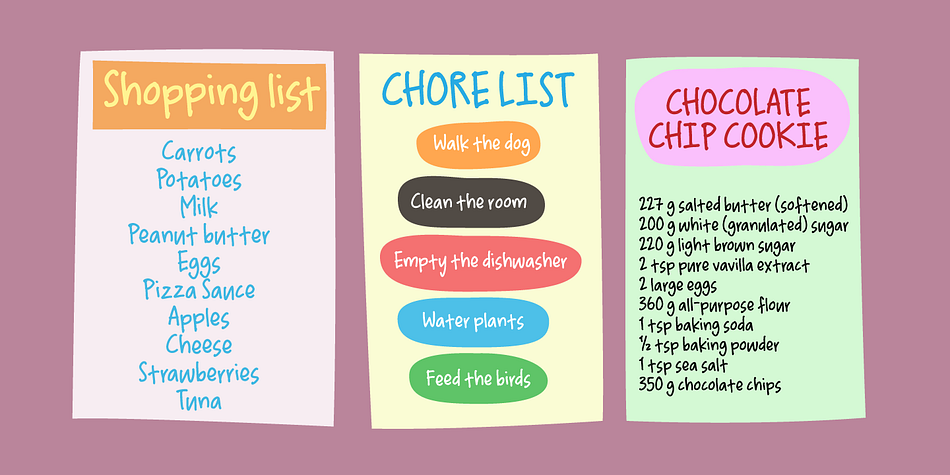 Shopping list
Carrots
Potatoes
Milk
Peanut butter
Eggs
Pizza Sauce
Apples
Cheese
Strawberries
Tuna
CHORE LIST
Walk the dog
Clean the room
Empty the dishwasher
Water plants
Feed the birds
CHOCOLATE
CHIP COOKIE
227 g salted butter (softened)
200 g white (granulated) sugar
220 g light brown sugar
2 tsp pure vavilla extract
2 large eggs
360 g all-purpose flour
1 tsp baking soda
½ tsp baking powder
1 tsp sea salt
350 g chocolate chips